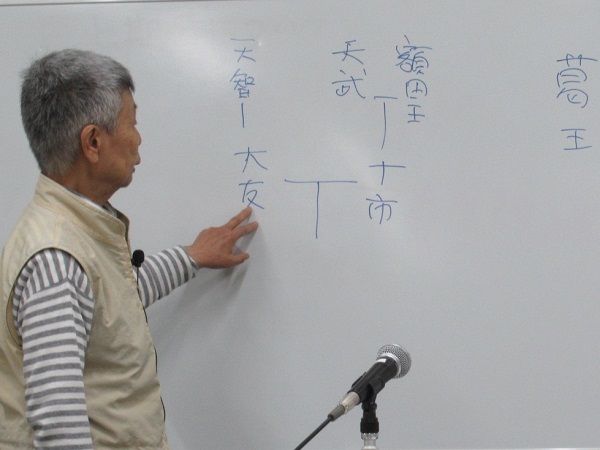 葛王
額田王
十市
天武
天智
大友